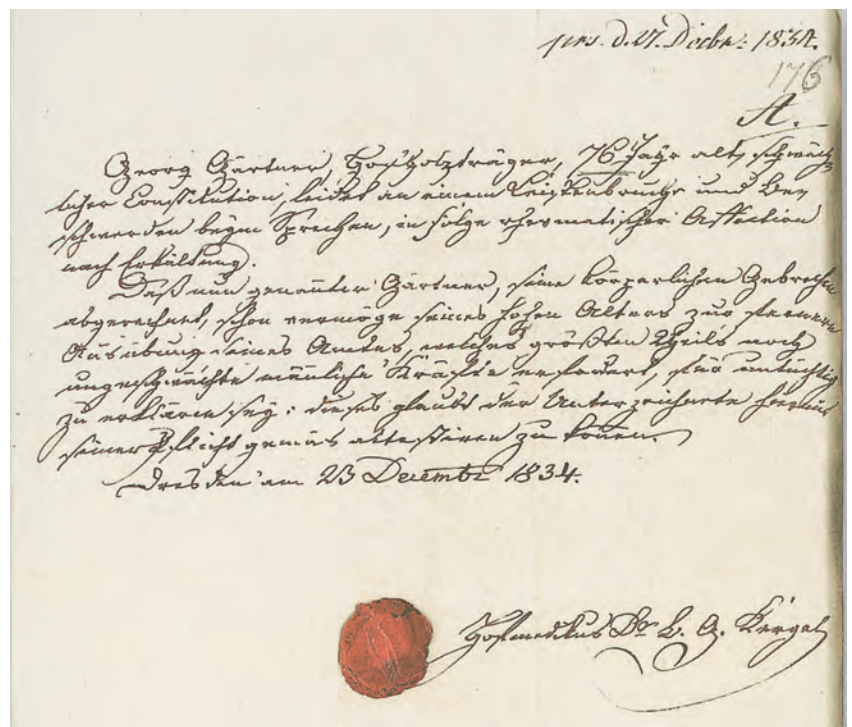 prs. d. 27. Decbr: 1834.
176
A.
Georg Gärtner, Hofholzträger, 76 Jahr alt, schwäch-
licher Constitution, leidet an einem Leistenbruche und Be-
schwerden beym Sprechen, in folge rheumatischer Affection
nach Erkältung.
Daß nun genannter Gärtner, seine körperlichen Gebrechen
abgerechnet, schon vermöge seines hohen Alters zur fernern
Ausübung seines Amtes, welches größten Theils noch
ungeschwächte männliche Kräfte erfodert, für untüchtig
zu erklären sey: dieses glaubt der Unterzeichnete hiermit
seiner Pflicht gemäs attestiren zu können.
Dresden am 23 Decembr 1834.
Hofmedikus Dr.